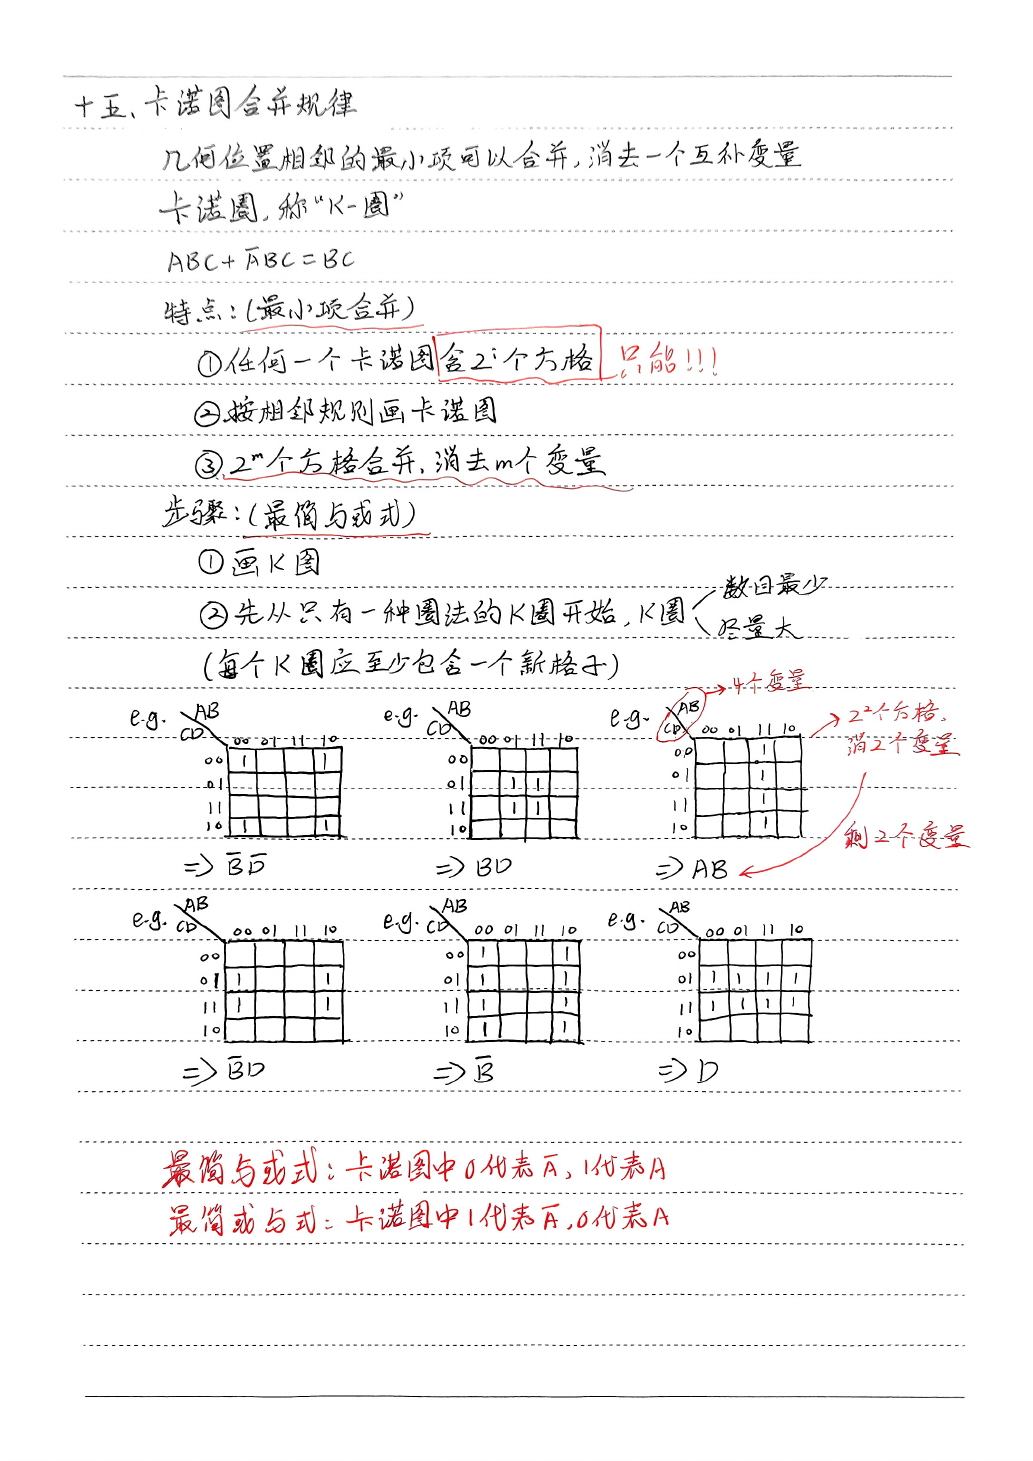 十五、卡诺图合并规律
几何位置相邻的最小项可以合并,消去一个互补变量
卡诺圈,称“K-圈”
ABC+A̅BC=BC
特点:(最小项合并)
①任何一个卡诺图含2ⁱ个方格 只能!!!
②按相邻规则画卡诺图
③2ᵐ个方格合并,消去m个变量
步骤:(最简与或式)
①画K图
②先从只有一种圈法的K圈开始,K圈 数目最少
尽量大
(每个K圈应至少包含一个新格子)
e.g. AB CD 00 01 11 10
00 1 1
01
11
10 1 1
⇒ B̅D̅
e.g. AB CD 00 01 11 10
00
01 1 1
11 1 1
10
⇒ BD
e.g. AB CD 00 01 11 10
00 1
01 1
11 1
10 1
⇒ AB
4个变量
2²个方格,
消2个变量
剩2个变量
e.g. AB CD 00 01 11 10
00
01 1 1
11 1 1
10
⇒ B̅D
e.g. AB CD 00 01 11 10
00 1 1
01 1 1
11 1 1
10 1 1
⇒ B̅
e.g. AB CD 00 01 11 10
00
01 1 1 1 1
11 1 1 1 1
10
⇒ D
最简与或式:卡诺图中0代表A̅,1代表A
最简或与式:卡诺图中1代表A̅,0代表A